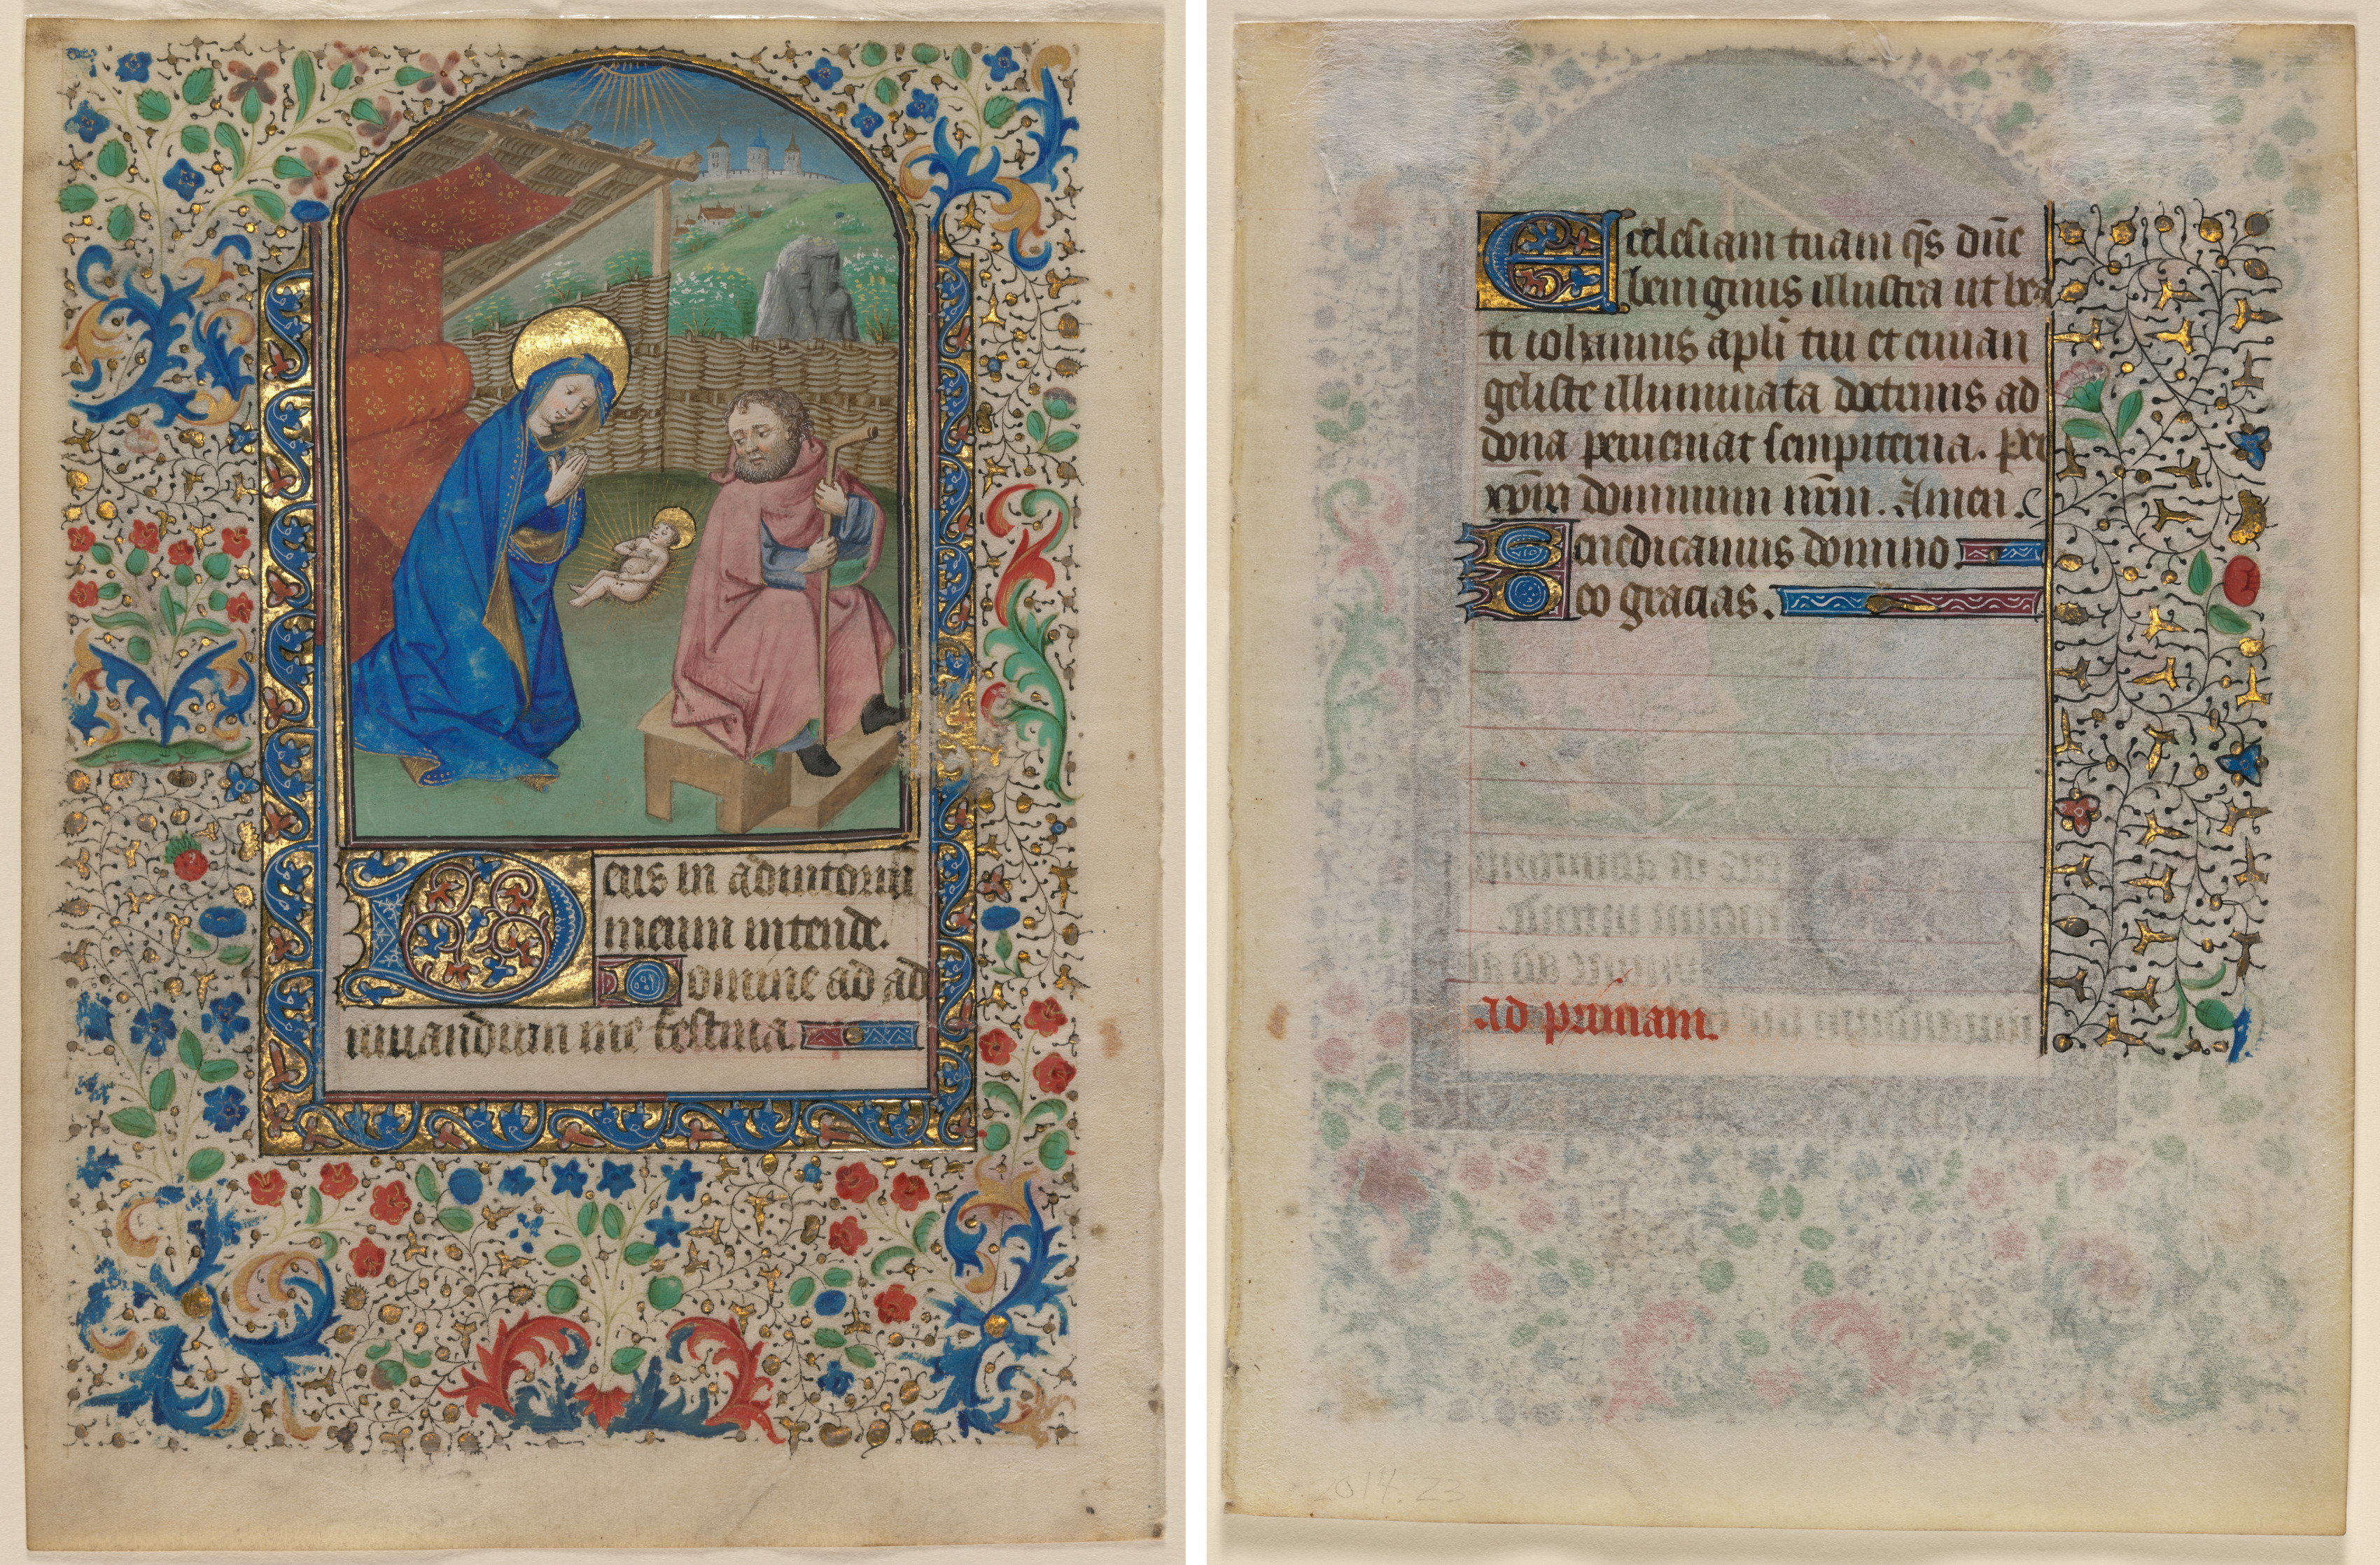 Deus in adiutoriū
meum intende.
Domine ad ad
iuuandum me festina.
Ecclesiam tuam q̄s dn̄e
benignus illustra ut bea
ti iohannis apl̄i tui et euuan
geliste illuminata doctrinis ad
dona perueniat sempiterna. Per
xp̄m dominum nr̄m. Amen.
Benedicamus domino
Deo gracias.
Ad primam.
014.23